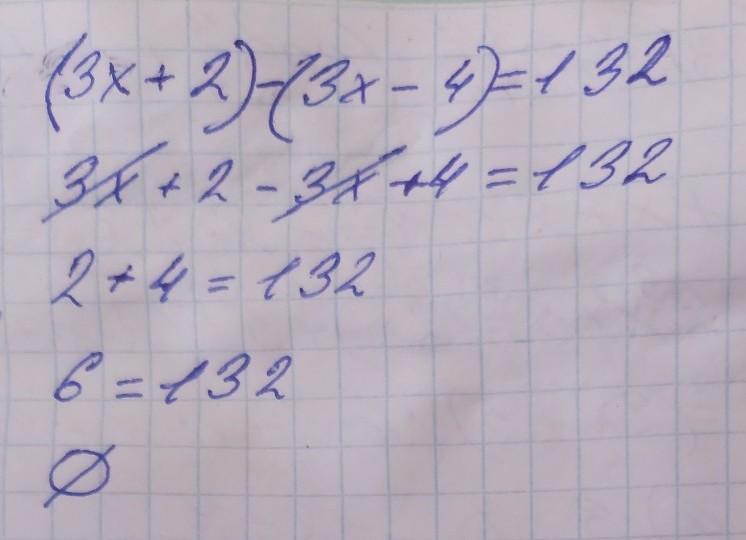 (3x + 2) - (3x - 4) = 132
3x + 2 - 3x + 4 = 132
2 + 4 = 132
6 = 132
∅